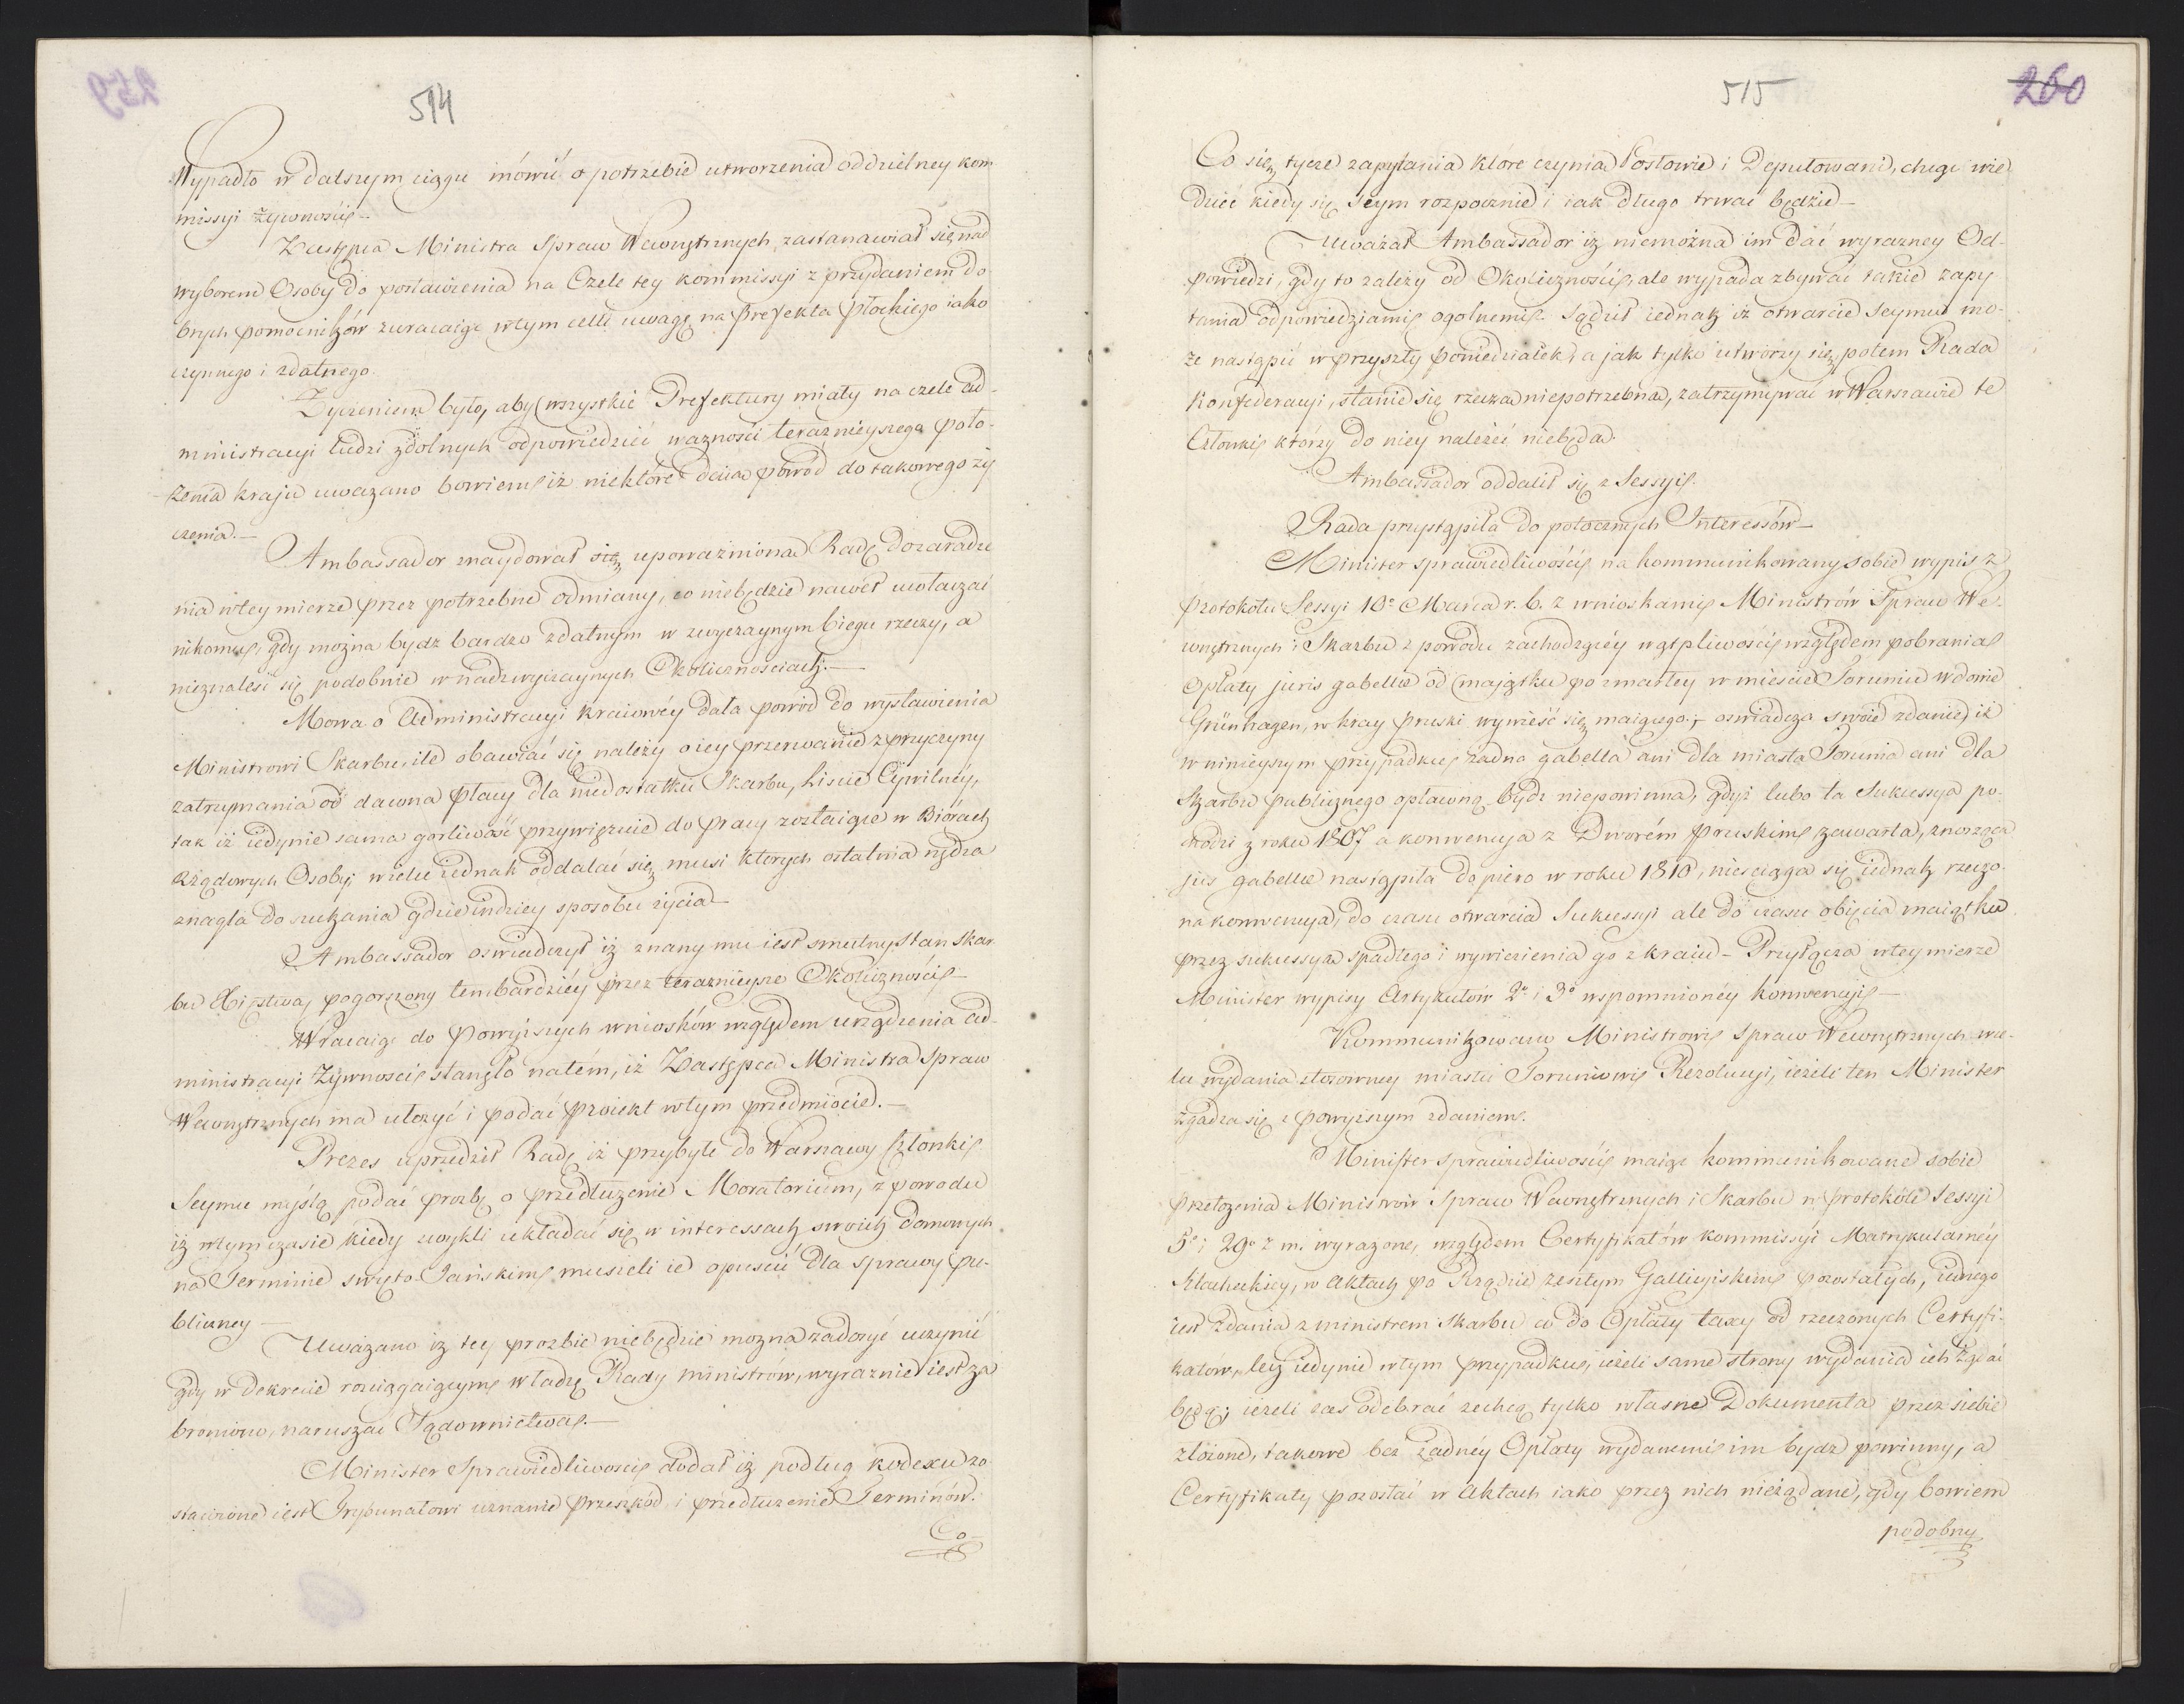 514
Wypadło w dalszym ciągu mówić o potrzebie utworzenia oddzielney kom
missyi Żywności –
Zastępca Ministra Spraw Wewnętrznych zastanawiał się nad
wyborem Osoby do postawienia na Czele tey kommissyi z przydaniem do
brych pomocników zwracaiąc w tym celu uwagę na Prefekta Płockiego iako
czynnego i zdatnego.
Życzeniem było, aby wszystkie Prefektury miały na czele ad-
ministracyi ludzi zdolnych odpowiedzieć ważności teraznieyszego poło-
żenia kraju uważano bowiem iż niektóre daią powód do takowego ży
czenia. –
Ambassador znaydował się upoważnioną Radę do zaradze
nia w tey mierze przez potrzebne odmiany, co niebędzie nawet uwłaczać
nikomu, gdy można bydz bardzo zdatnym w zwyczaynym biegu rzeczy, a
nieznaleść się podobnie w nadzwyczaynych Okolicznościach. –
Mowa o Administracyi kraiowéy dała powód do wystawienia
Ministrowi Skarbu, ile obawiać się należy o iey przerwanie z przyczyny
zatrzymania od dawna płacy dla niedostatku Skarbu, Liście Cywilnéy,
tak iż iedynie sama gorliwość przywięzuie do pracy zostaiące w Biórach
Rządowych Osoby; wielu iednak oddalać się musi których ostatnia nędza
znagla do szukania gdzieindziey sposobu życia –
Ambassador oswiadczył iż znany mu iest smutny stan Skar
bu Xięstwa, pogorszony tembardziéy przez teraznieysze Okoliczności –
Wracaiąc do powyższych wniosków względem urządzenia ad-
ministracyi Żywności stanęło na tém, iż Zastępca Ministra Spraw
Wewnętrznych ma ułożyć i podać proiekt w tym przedmiocie. –
Prezes uprzedził Radę iż przybyłe do Warszawy Członki
Seymu myślą podać prozbę o przedłużenie Moratorium, z powodu
iż w tym czasie kiedy zwykli układać się w interessach swoich domowych
na Terminie swięto-Jańskim musieli ie opuścić dla sprawy pu-
bliczney –
Uważano iż tey prozbie niebędzie można zadosyć uczynić
gdy w Dekrecie rozciągaiącym władzę Rady Ministrów, wyraznie iest za
bronione, naruszać Sądownictwa. –
Minister Sprawiedliwości dodał iż podług kodexu zo
stawione iest Trybunałowi uznanie przeszkód i przedłużenie Terminów.
Co
515
260
Co się tycze zapytania które czynią Posłowie i Deputowani, chcąc wie
dzieć kiedy się Seym rozpocznie i iak długo trwać będzie –
Uważał Ambassador iż niemożna im dać wyrazney Od-
powiedzi, gdy to zależy od Okoliczności, ale wypada zbywać takie zapy
tania odpowiedziami ogolnemi. Sądził iednak iż otwarcie Seymu mo-
że nastąpić w przyszły poniedziałek, a jak tylko utworzy się potem Rada
Konfederacyi, stanie się rzeczą niepotrzebną, zatrzymywać w Warszawie te
Członki którzy do niey należeć niebędą.
Ambassador oddalił się z Sessyi.
Rada przystąpiła do potocznych Interessów –
Minister sprawiedliwości na kommunikowany sobie wypis z
protokołu Sessyi 10º Marca r. b. z wnioskami Ministrów Spraw We-
wnętrznych i Skarbu z powodu zachodzącéy wątpliwości względem pobrania
Opłaty juris gabellae od maiątku po zmarłey w mieście Toruniu wdowie
Grünhagen, w kray pruski wywieść się maiącego; – oswiadcza swoie zdanie, iż
w ninieyszym przypadku żadna gabella ani dla miasta Torunia ani dla
Skarbu publicznego opłaconą bydz niepowinna, gdyż lubo ta Sukcessya po-
chodzi z roku 1807 a konwencya z Dworem pruskim zawarta, znosząca
jus gabellae nastąpiła dopiero w roku 1810, niesciąga się iednak rzeczo
na konwencya, do czasu otwarcia Sukcessyi ale do czasu obięcia maiątku
przez sukcessya spadłego i wywiezienia go z kraiu – Przyłącza w tey mierze
Minister wypisy Artykułów 2º i 3º wspomnionéy konwencyi –
Kommunikowano Ministrowi Spraw Wewnętrznych w ce-
lu wydania stosowney miastu Toruniowi Rezolucyi, ieżeli ten Minister
zgadza się z powyższym zdaniem.
Minister sprawiedliwości maiąc kommunikowane sobie
przełożenia Ministrów Spraw Wewnętrznych i Skarbu w protokóle Sessyi
5º i 29º z. m. wyrażone, względem Certyfikatów kommissyi Matrykularnéy
Szlacheckiey, w Aktach po Rządzie zeszłym Gallicyiskim pozostałych, iednego
iest zdania z ministrem Skarbu co do Opłaty taxy od rzeczonych Certyfi-
katów, lecz iedynie w tym przypadku, ieżeli same strony wydania ich żądać
będą; ieżeli zas odebrać zechcą tylko własne Dokumenta przez siebie
złożone, takowe bez żadnéy Opłaty wydanemi im bydz powinny, a
Certyfikaty pozostać w Aktach iako przez nich nieżądane, gdy bowiem
podobny